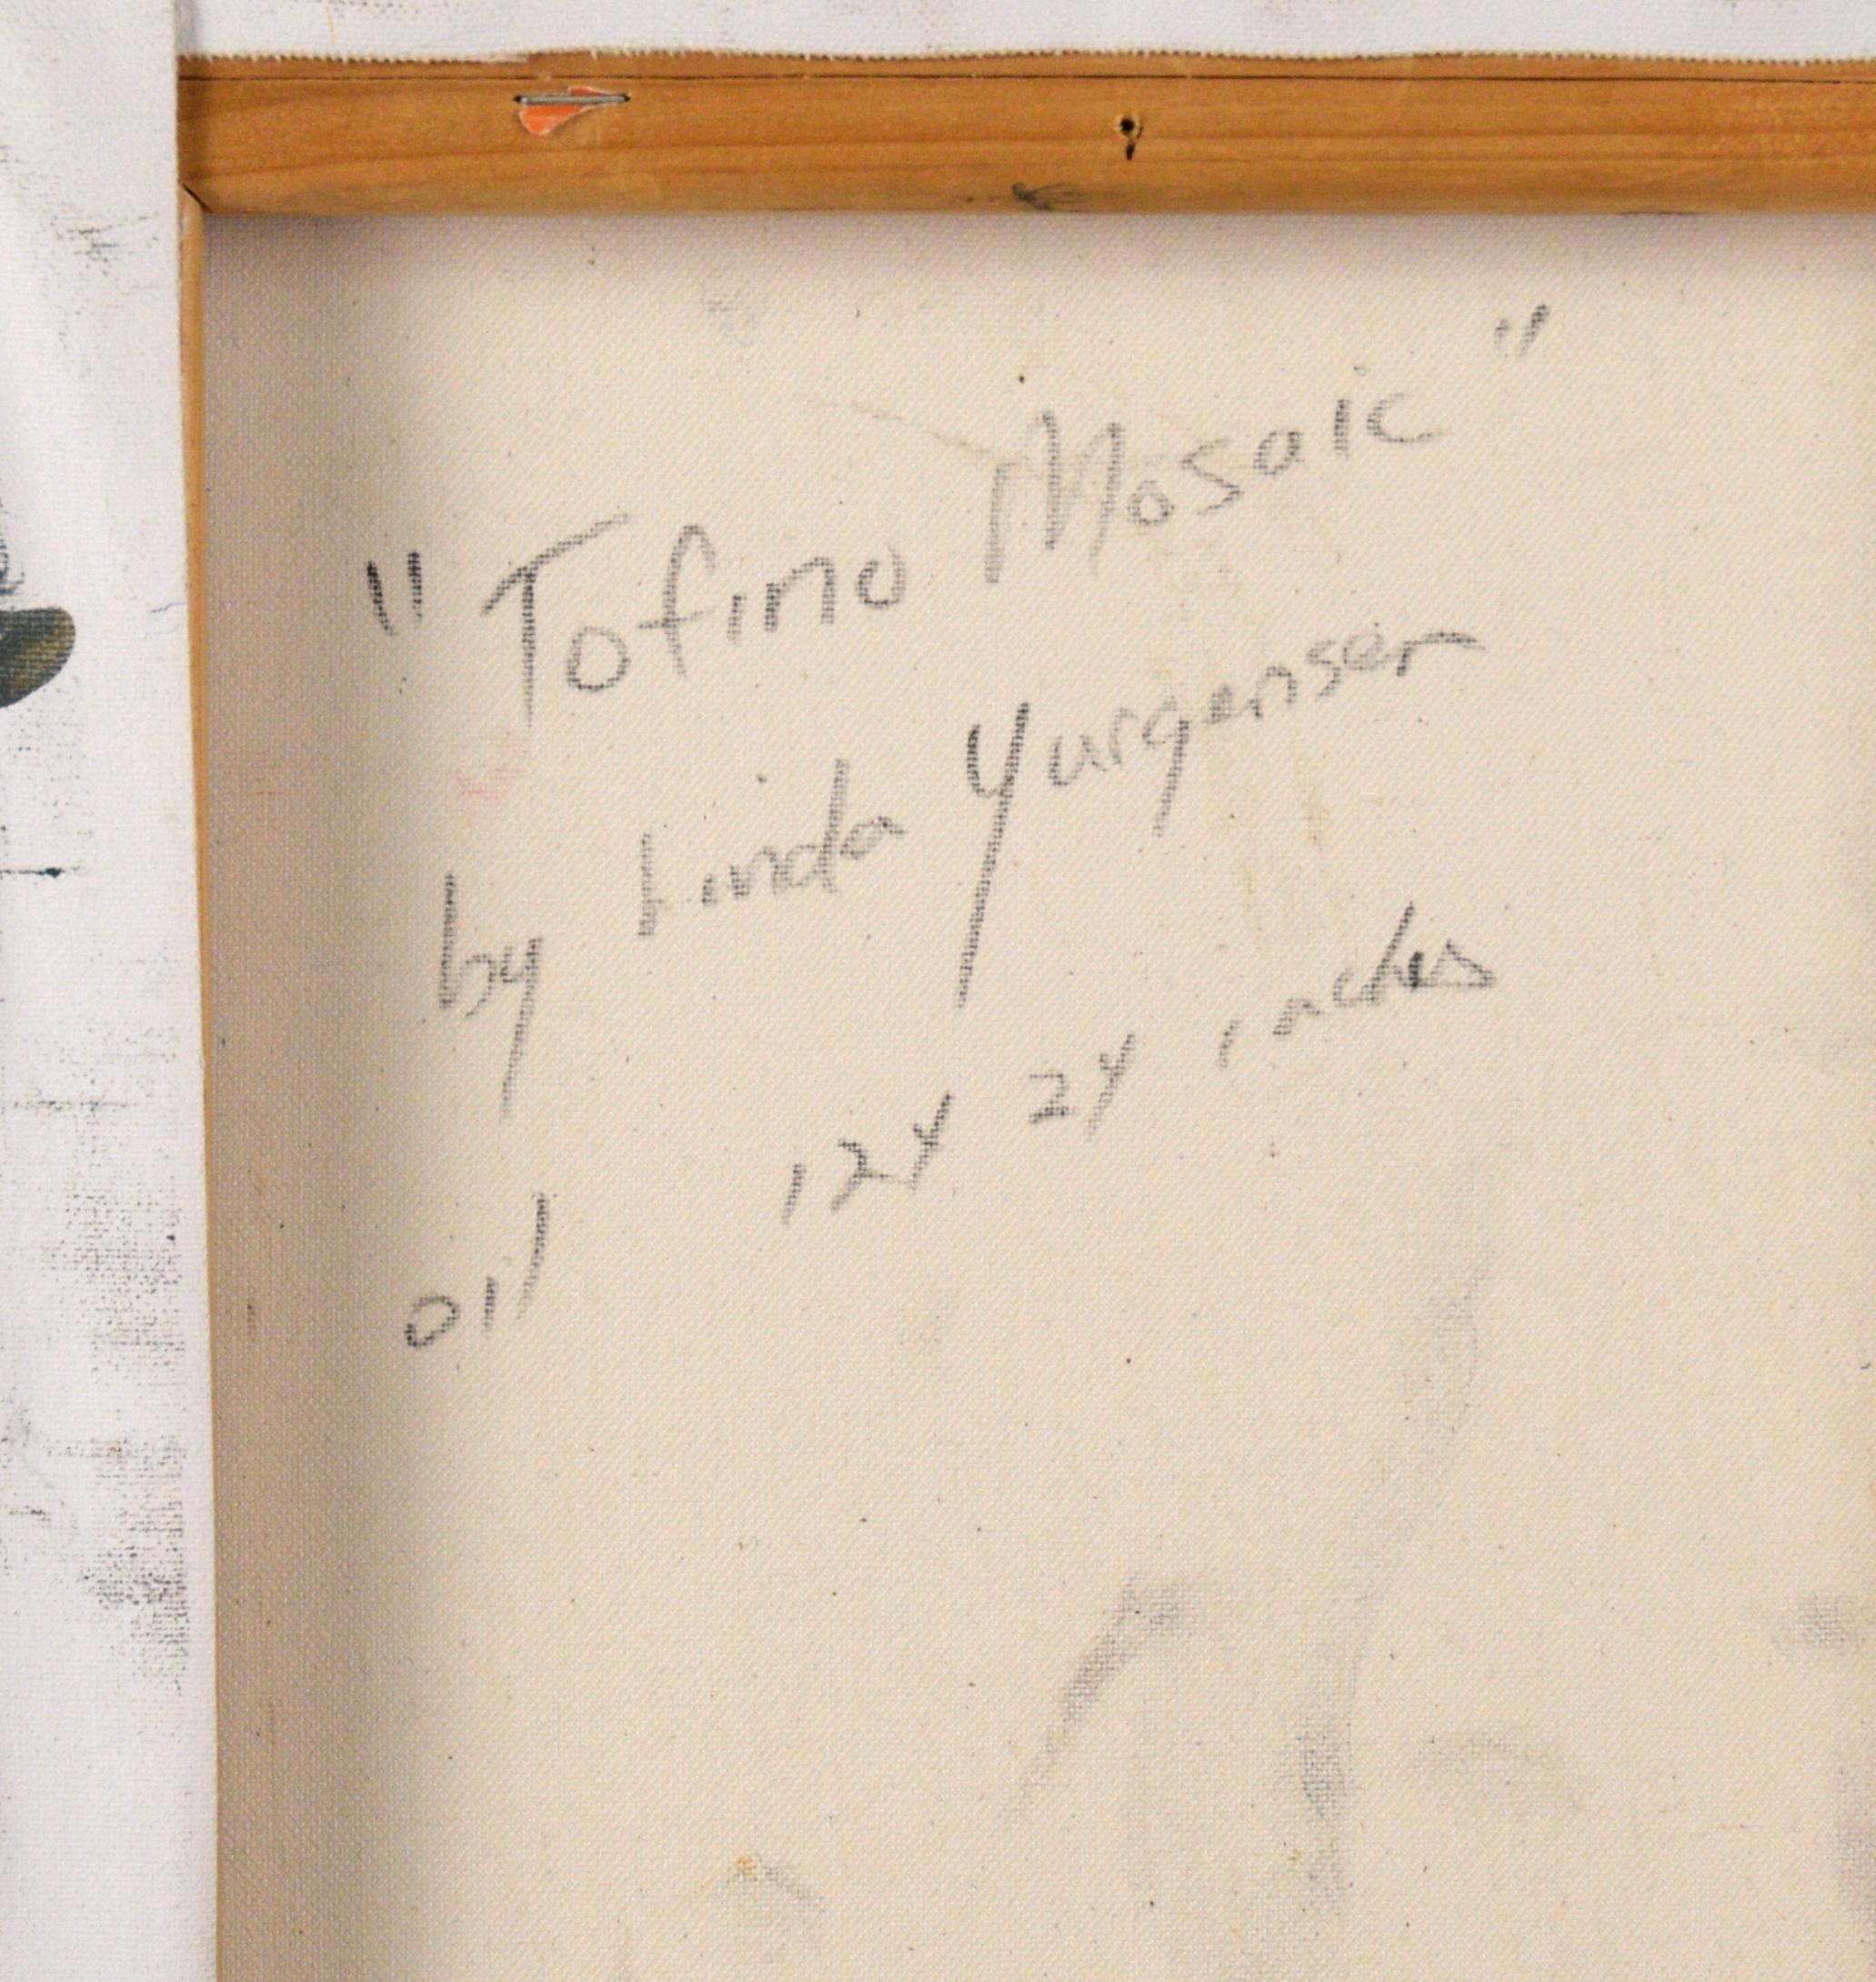 "Tofino Mosaic"
by Linda Yurgensen
oil 12x 24 inches